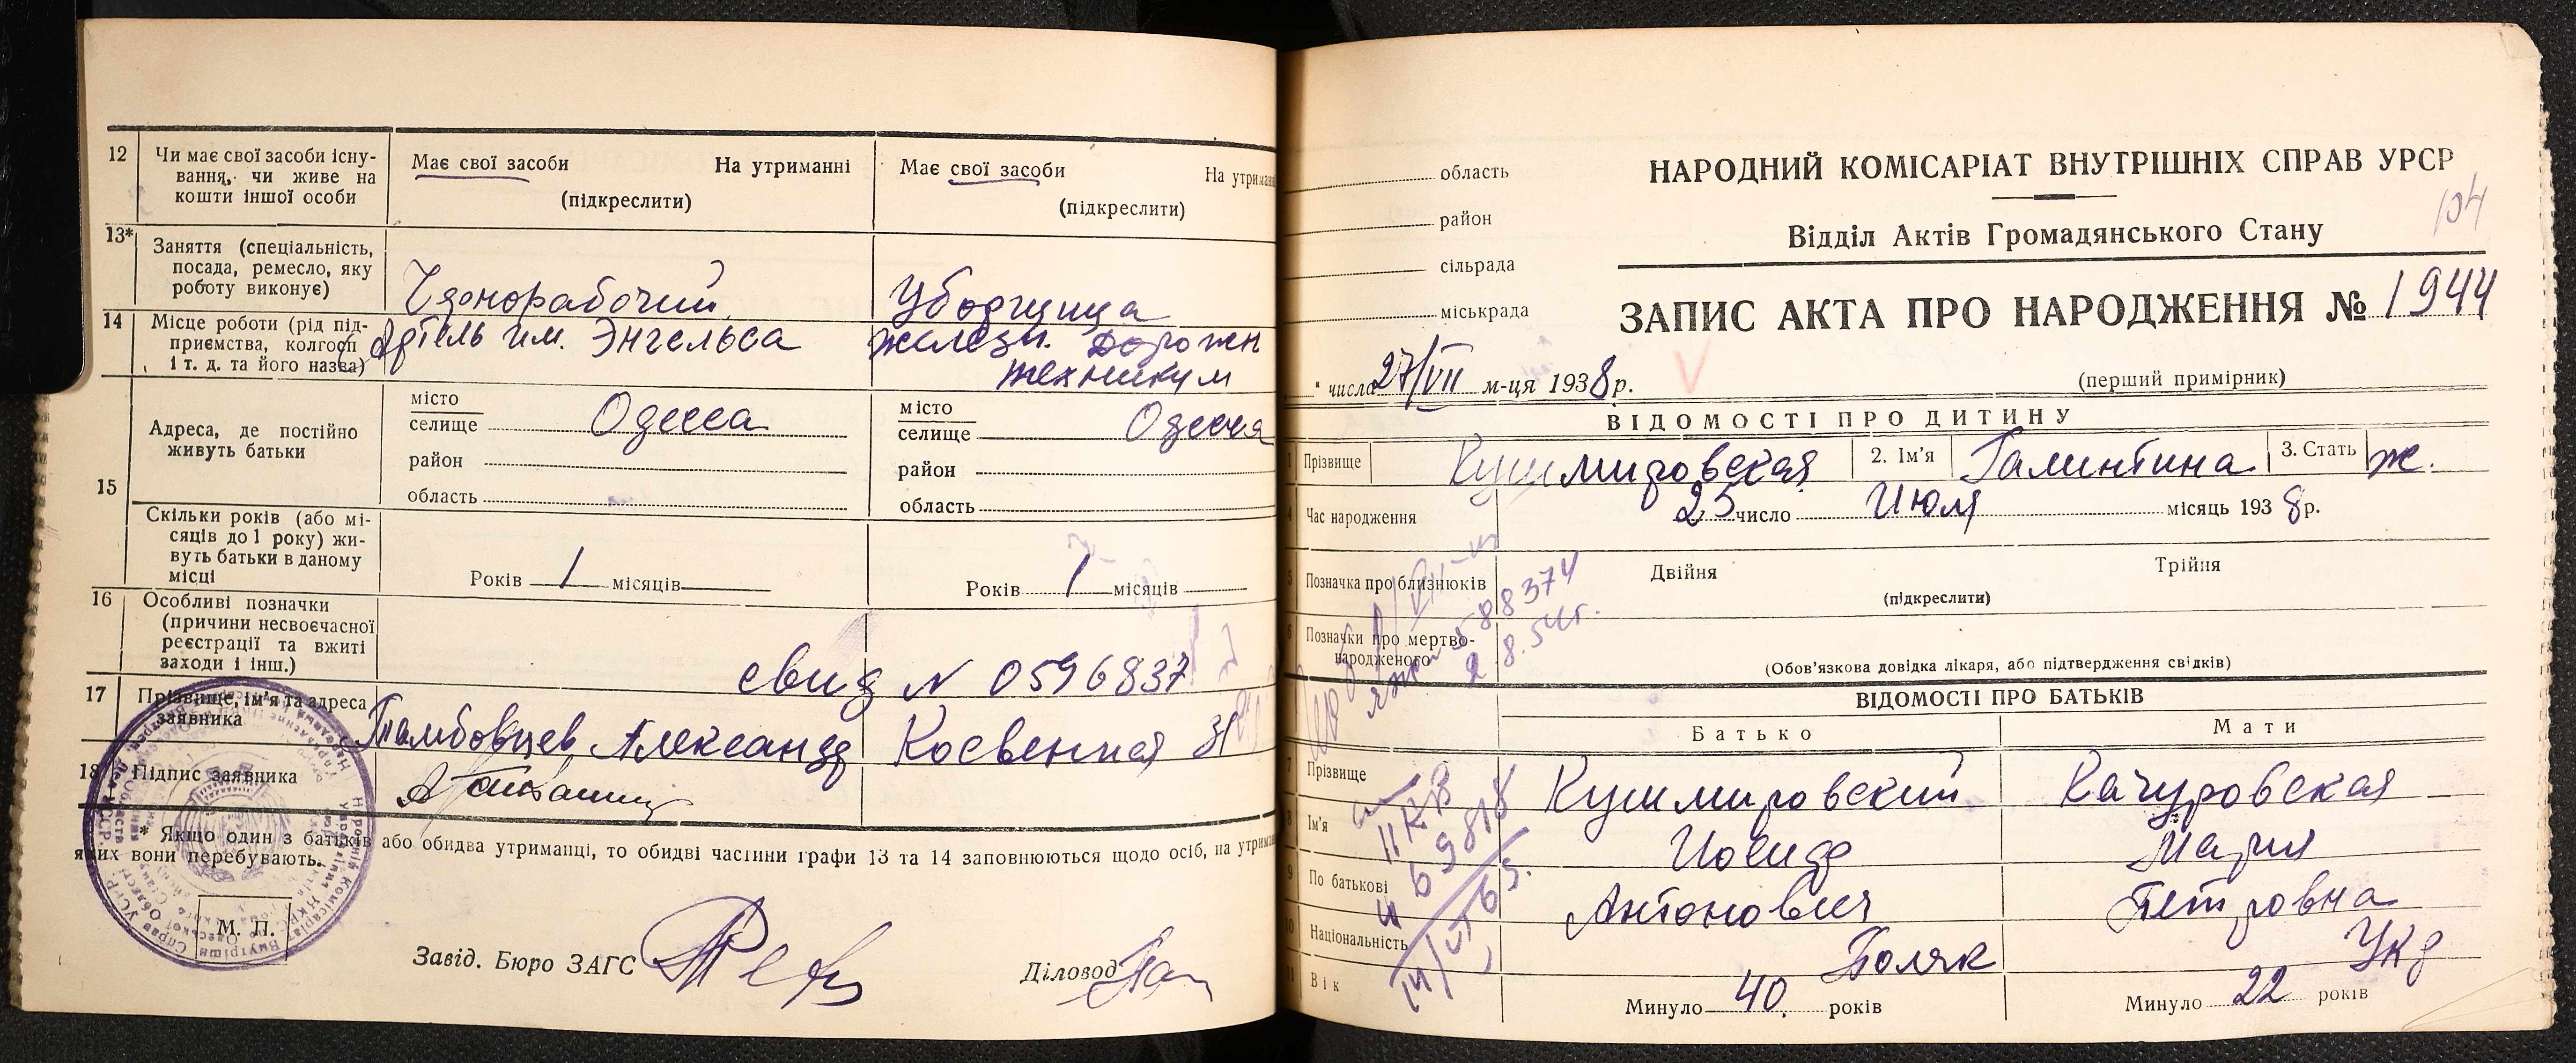 12 Чи має свої засоби існування, чи живе на кошти іншої особи
Має свої засоби На утриманні
(підкреслити)
Має свої засоби На утриманні
(підкреслити)
13* Заняття (спеціальність, посада, ремесло, яку роботу виконує)
Чернорабочий
Уборщица
14 Місце роботи (рід підприємства, колгосп і т. д. та його назва)
Артель им. Энгельса
железн. дорожн
техникум
15 Адреса, де постійно живуть батьки
місто
селище Одесса
район
область
місто
селище Одесса
район
область
Скільки років (або місяців до 1 року) живуть батьки в даному місці
Років 1 місяців
Років 1 місяців
16 Особливі позначки (причини несвоєчасної реєстрації та вжиті заходи і інш.)
свид N 0596837
17 Прізвище, ім'я та адреса заявника
Тамбовцев Александр Косвенная 31
18 Підпис заявника
* Якщо один з батьків або обидва утриманці, то обидві частини графи 13 та 14 заповнюються щодо осіб, на утрим
яких вони перебувають.
М. П.
Завід. Бюро ЗАГС
Діловод
область
район
сільрада
міськрада
НАРОДНИЙ КОМІСАРІАТ ВНУТРІШНІХ СПРАВ УРСР
104
Відділ Актів Громадянського Стану
ЗАПИС АКТА ПРО НАРОДЖЕННЯ № 1944
" число 27/VII м-ця 1938 р.
(перший примірник)
ВІДОМОСТІ ПРО ДИТИНУ
1 Прізвище Кушмировская 2. Ім'я Галинтина 3. Стать ж.
4 Час народження 25 число Июля місяць 1938 р.
5 Позначка про близнюків Двійня Трійня
(підкреслити)
588374
6 Позначки про мертвонародженого
8.54г.
(Обов'язкова довідка лікаря, або підтвердження свідків)
ВІДОМОСТІ ПРО БАТЬКІВ
Батько Мати
7 Прізвище Кушмировский Качуровская
8 Ім'я Иосиф Мария
9 По батькові Антонович Петровна
10 Національність Поляк Укр
11 Вік Минуло 40 років Минуло 22 років